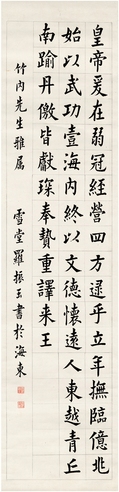 皇帝爰在弱冠經營四方逮乎立年撫臨億兆
始以武功壹海内終以文德懷遠人東越青丘
南踰丹徼皆獻琛奉贄重譯来王
竹内先生雅屬
雪堂羅振玉書於海東